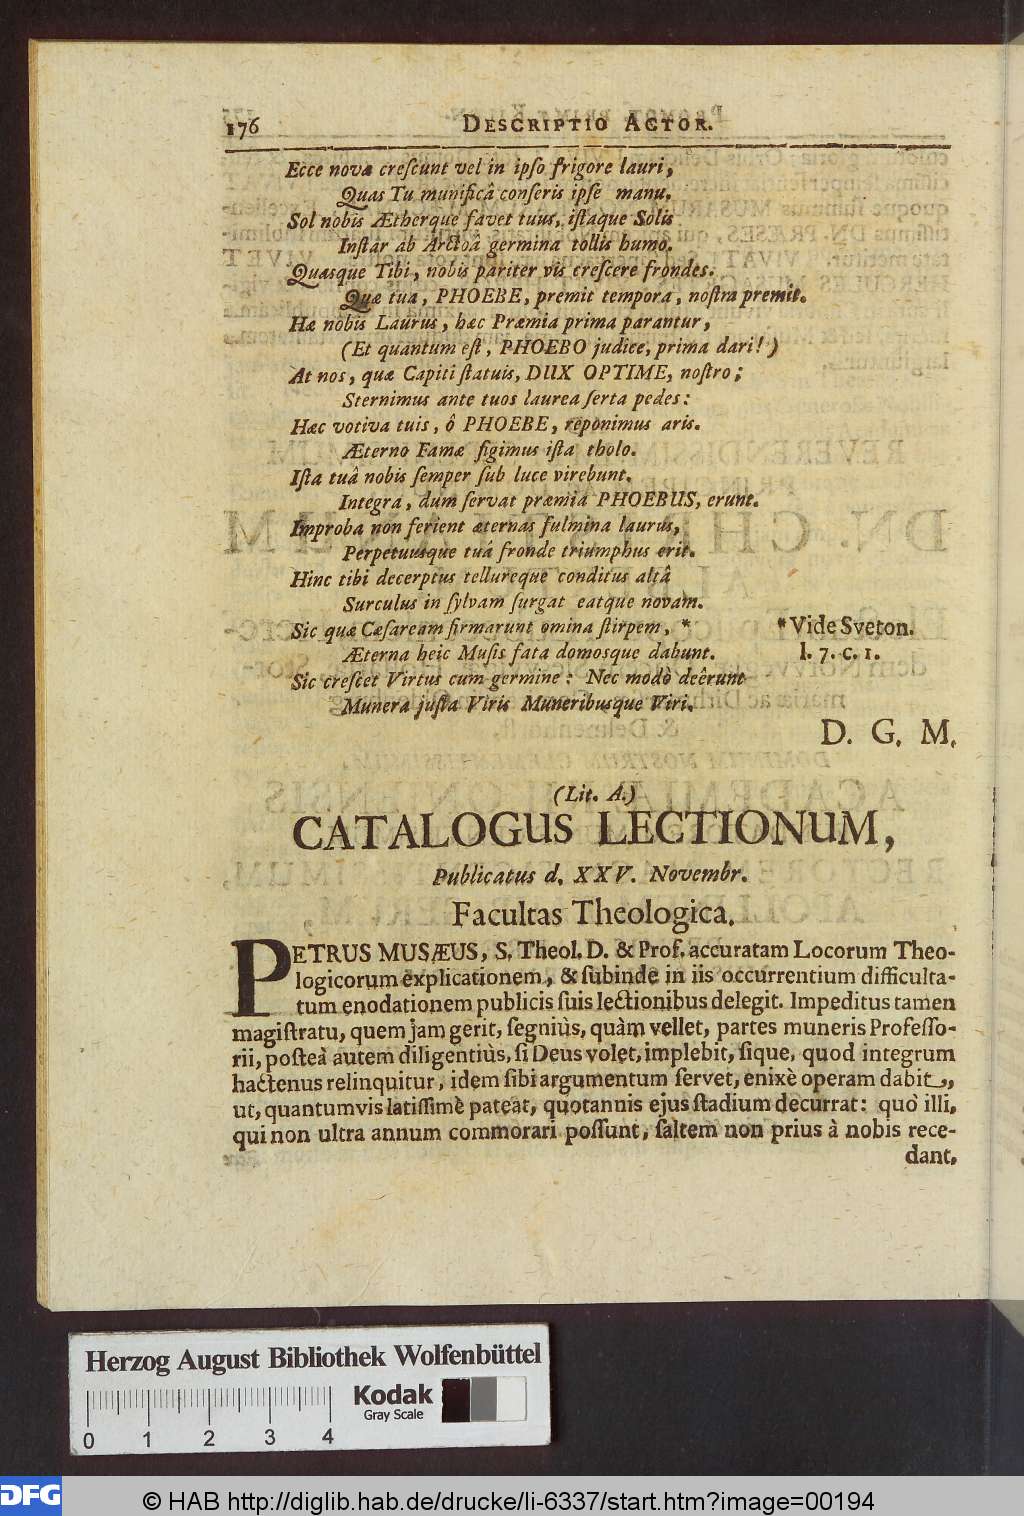 176 DESCRIPTIO ACTOR.
Ecce novæ creſcunt vel in ipſo frigore lauri,
Quas Tu munificâ conſeris ipſe manu.
Sol nobis Ætherque favet tuus, iſtaque Solis
Inſtar ab Arctoâ germina tollis humo.
Quasque Tibi, nobis pariter vis creſcere frondes.
Quæ tua, PHOEBE, premit tempora, noſtra premit.
Hæ nobis Laurus, hæc Præmia prima parantur,
(Et quantum eſt, PHOEBO judice, prima dari!)
At nos, quæ Capiti ſtatuis, DUX OPTIME, noſtro;
Sternimus ante tuos laurea ſerta pedes:
Hæc votiva tuis, ô PHOEBE, reponimus aris.
Æterno Famæ figimus iſta tholo.
Iſta tuâ nobis ſemper ſub luce virebunt.
Integra, dum ſervat præmia PHOEBUS, erunt.
Improba non ferient æternas fulmina laurus,
Perpetuusque tuâ fronde triumphus erit.
Hinc tibi decerptus tellureque conditus altâ
Surculus in ſylvam ſurgat eatque novam.
Sic quæ Cæſaream firmarunt omina ſtirpem, * * Vide Sveton.
Æterna heic Muſis fata domosque dabunt. l. 7. c. 1.
Sic creſcet Virtus cum germine: Nec modò deêrunt
Munera juſta Viris Muneribusque Viri.
D. G. M.
(Lit. A.)
CATALOGUS LECTIONUM,
Publicatus d. XXV. Novembr.
Facultas Theologica.
PETRUS MUSÆUS, S. Theol. D. & Prof. accuratam Locorum Theo-
logicorum explicationem, & ſubinde in iis occurrentium difficulta-
tum enodationem publicis ſuis lectionibus delegit. Impeditus tamen
magiſtratu, quem jam gerit, ſegniùs, quàm vellet, partes muneris Profeſſo-
rii, poſteà autem diligentiùs, ſi Deus volet, implebit, ſique, quod integrum
hactenus relinquitur, idem ſibi argumentum ſervet, enixè operam dabit,
ut, quantumvis latiſſimè pateat, quotannis ejus ſtadium decurrat: quò illi,
qui non ultra annum commorari poſſunt, ſaltem non prius à nobis rece-
dant,
Herzog August Bibliothek Wolfenbüttel
Kodak
Gray Scale
0 1 2 3 4
DFG
© HAB http://diglib.hab.de/drucke/li-6337/start.htm?image=00194